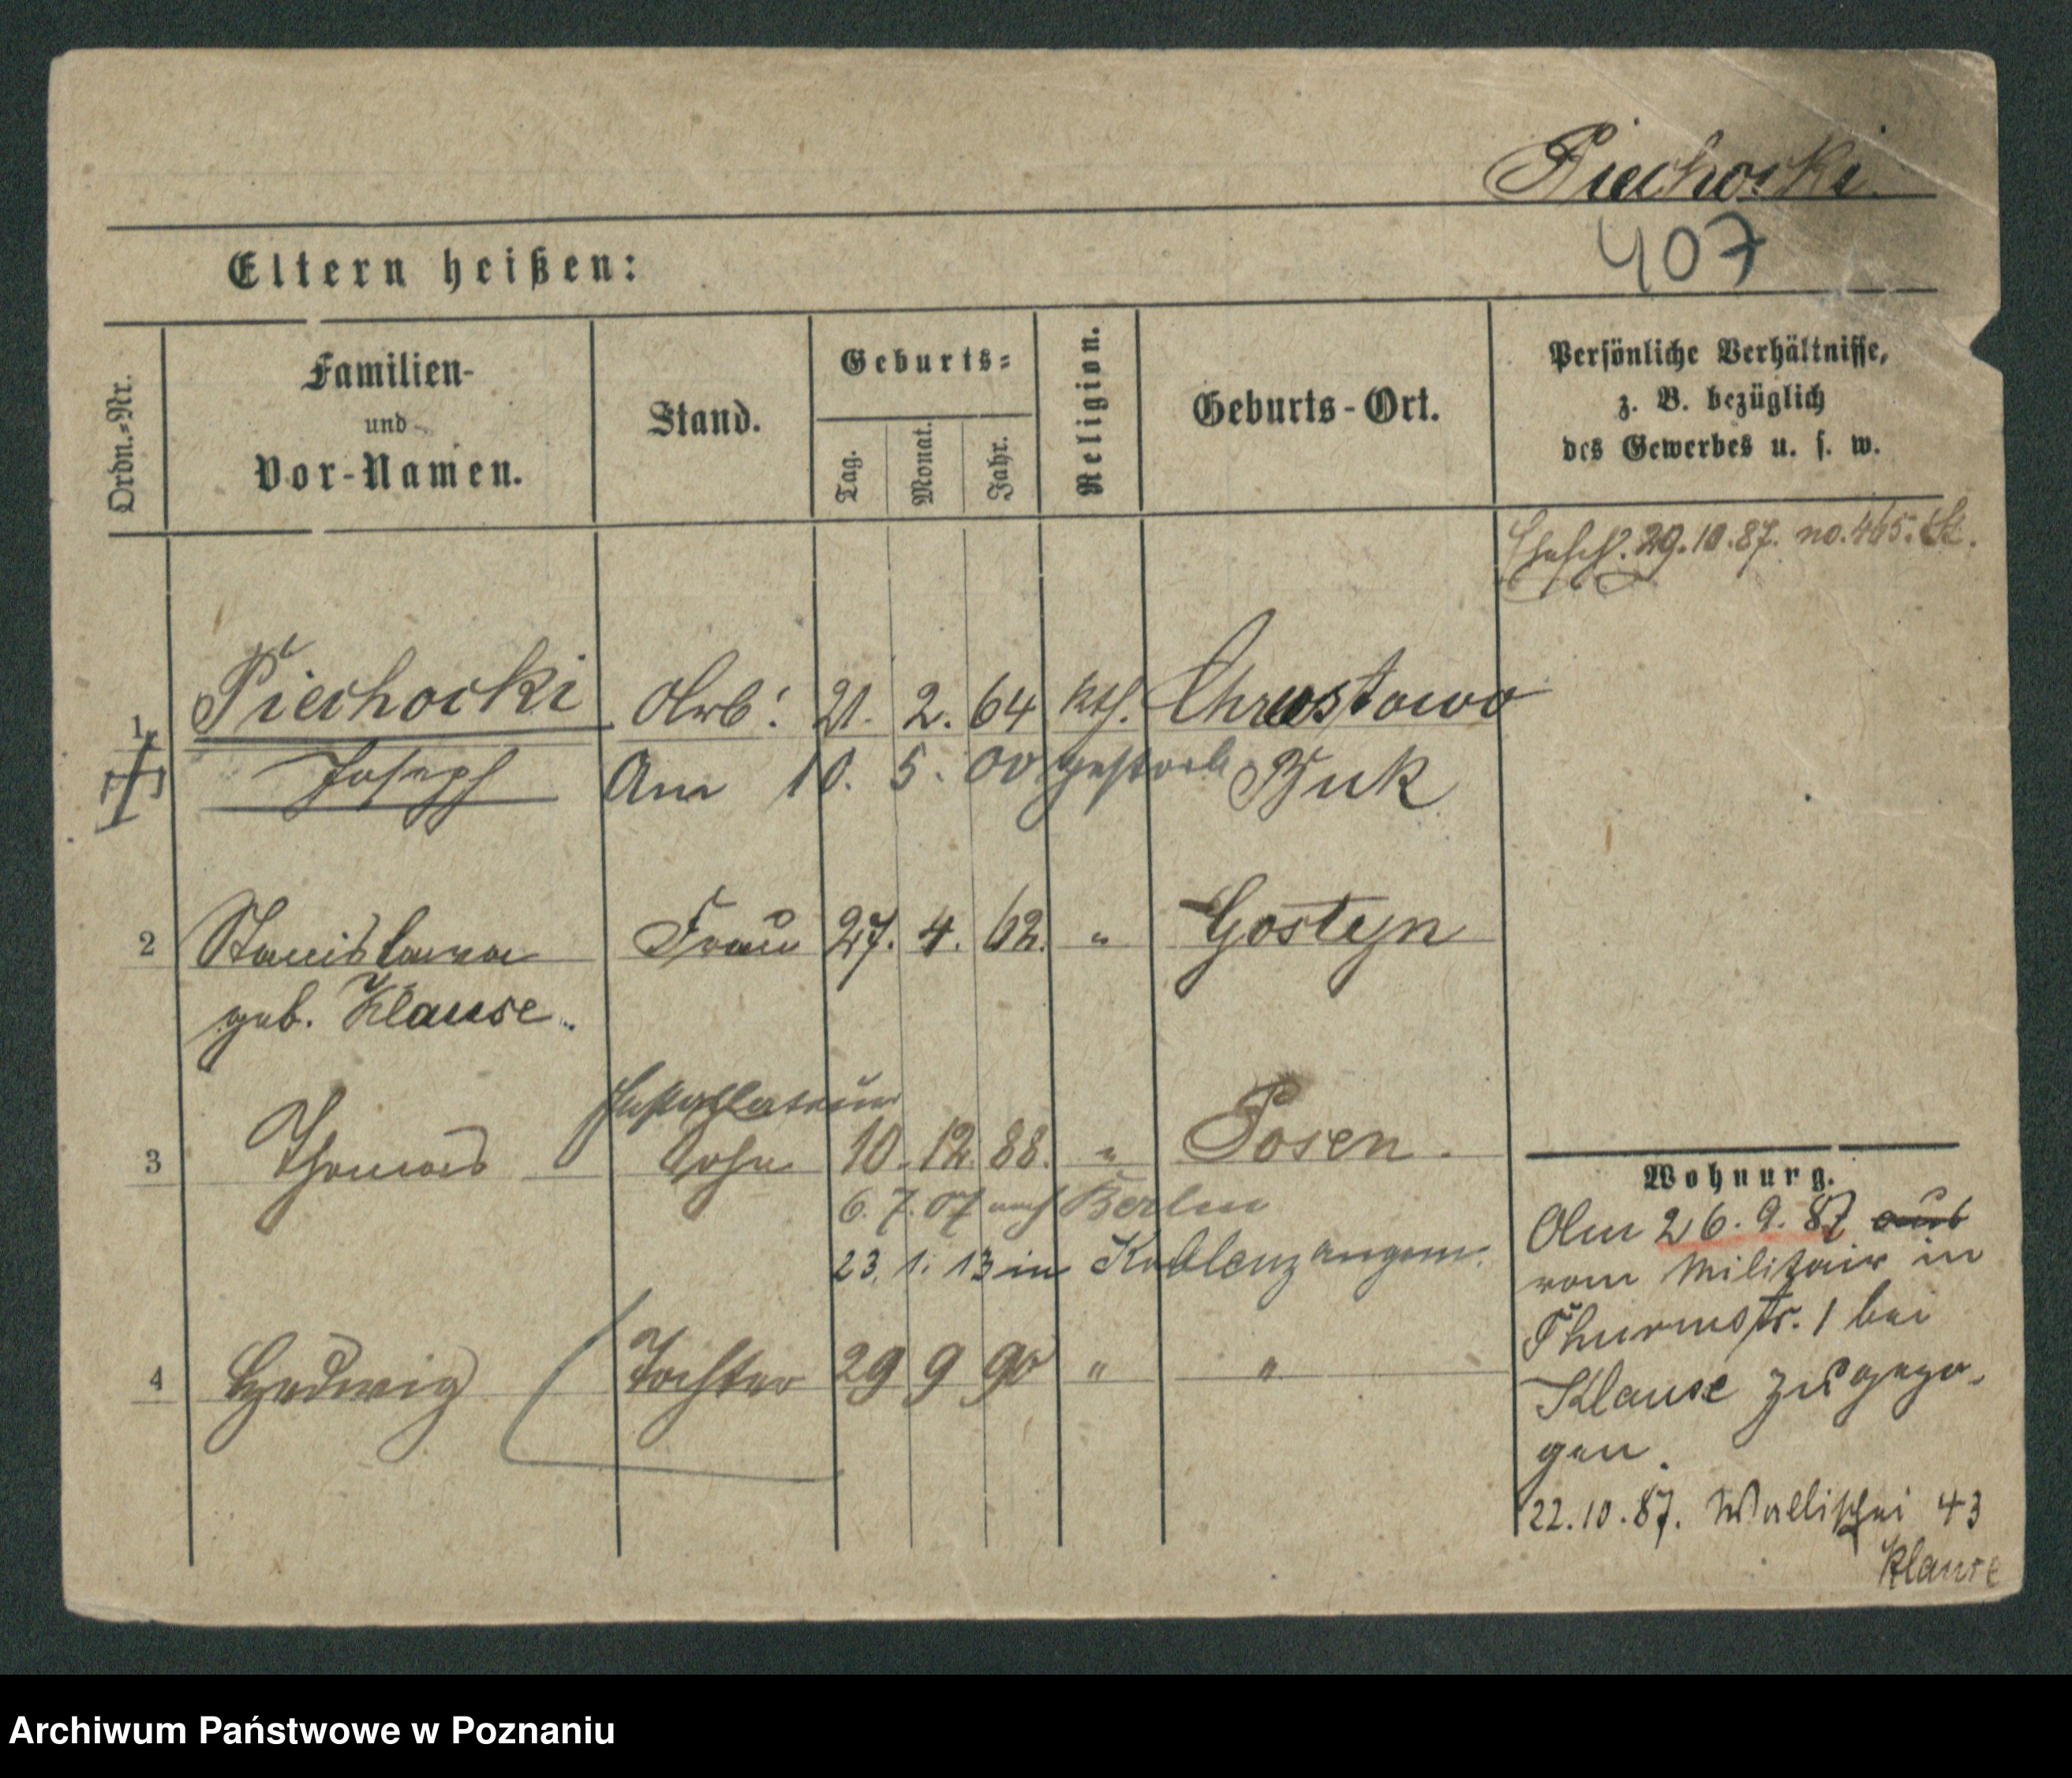 Piechocki
407
Eltern heißen:
Ordn.-Nr.
Familien-
und
Vor-Namen.
Stand.
Geburts-
Tag.
Monat.
Jahr.
Religion.
Geburts-Ort.
Persönliche Verhältnisse,
z. B. bezüglich
des Gewerbes u. s. w.
29.10.87. no. 465.
1. Piechocki Arb: 21. 2. 64 kth. Chrustowo
Joseph Am 10. 5. 00 gestorb Buk
2 Stanislawa Frau 27. 4. 62. " Gostyn
geb. Klause.
Installateur
3 Thomas Sohn 10. 12. 88. " Posen.
6. 7. 07 nach Berlin
23. 1. 13 in Koblenz angem.
4 Hedwig Tochter 29 9 90 " "
Wohnung.
Am 26. 9. 87 aus
vom Militair in
Thurmstr. 1 bei
Klause zugezo-
gen.
22.10.87. Wallischei 43
Klause
Archiwum Państwowe w Poznaniu